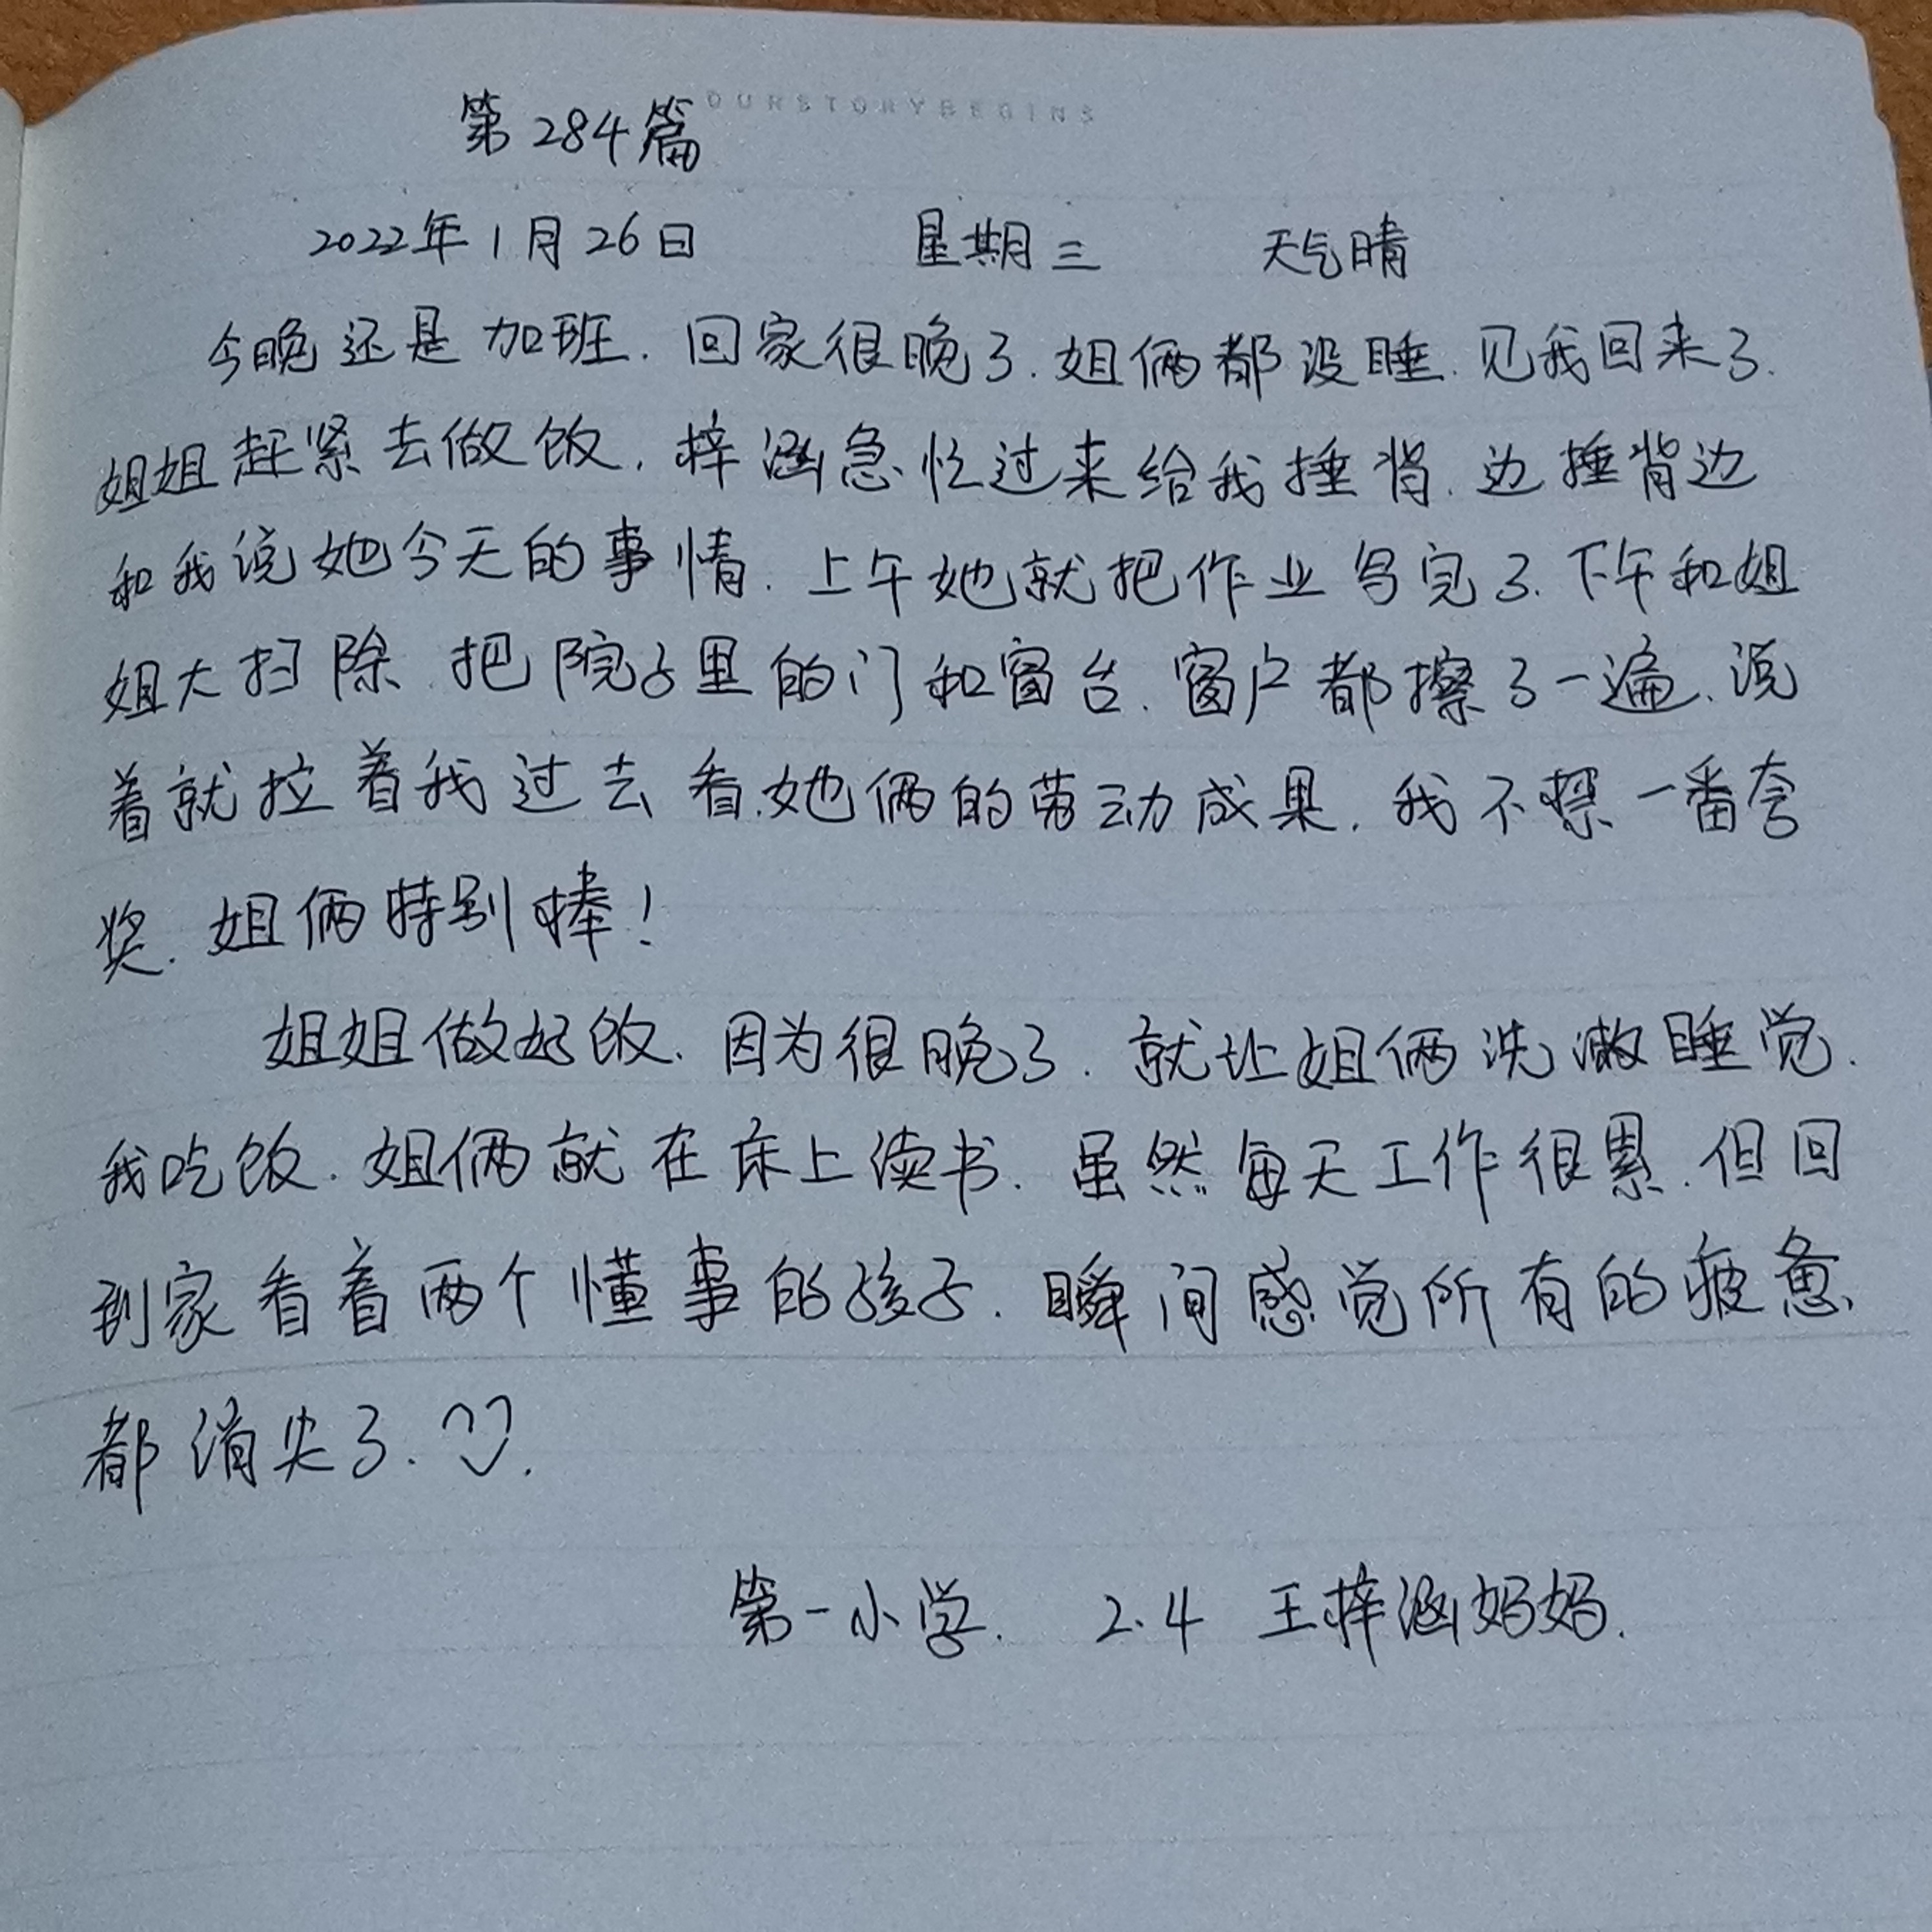 OURSTORYBEGINS
第284篇
2022年1月26日 星期三 天气晴
今晚还是加班.回家很晚了.姐俩都没睡.见我回来了.
姐姐赶紧去做饭,梓涵急忙过来给我捶背.边捶背边
和我说她今天的事情.上午她就把作业写完了.下午和姐
姐大扫除.把院子里的门和窗台.窗户都擦了一遍.说
着就拉着我过去看她俩的劳动成果.我不禁一番夸
奖.姐俩特别棒!
姐姐做好饭.因为很晚了.就让姐俩洗漱睡觉.
我吃饭.姐俩就在床上读书.虽然每天工作很累.但回
到家看着两个懂事的孩子.瞬间感觉所有的疲惫
都消失了.
第一小学. 2.4 王梓涵妈妈.